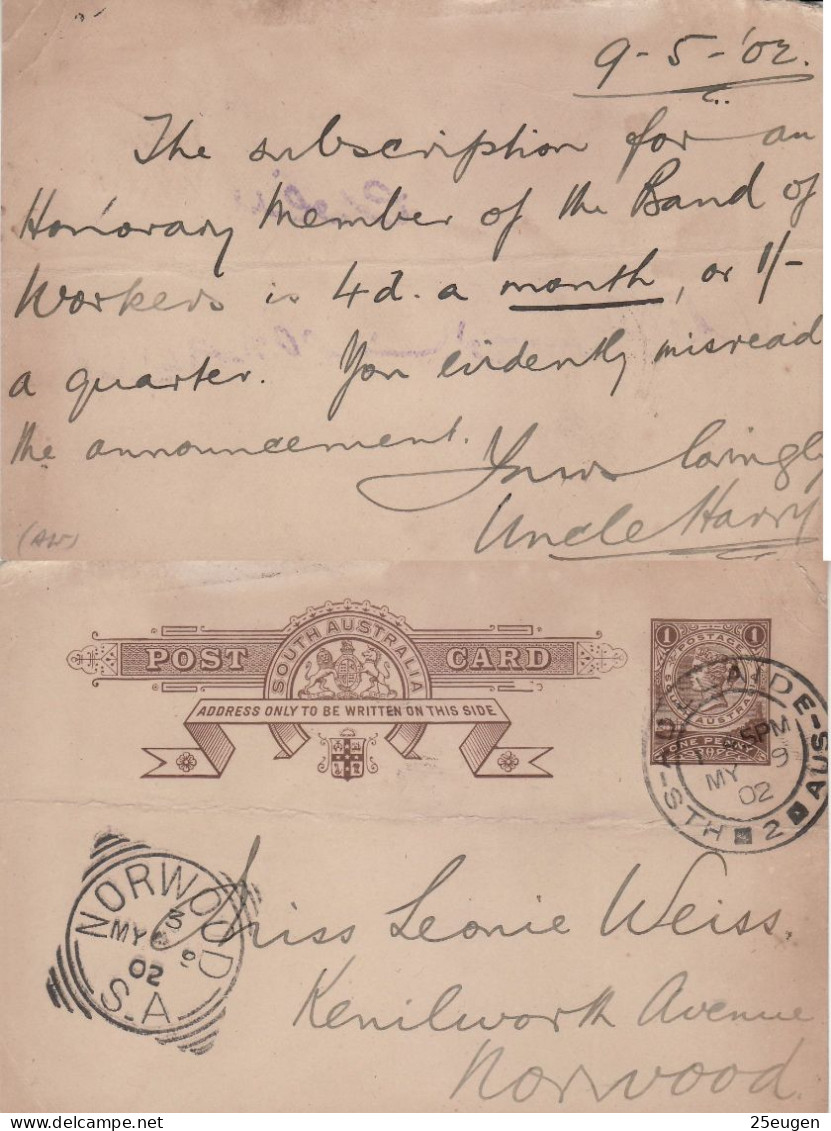 9-5-'02.
The subscription for an
Honorary Member of the Band of
Workers is 4d. a month, or 1/-
a quarter. You evidently misread
the announcement.
Yours lovingly
Uncle Harry
(AW)
POST CARD
SOUTH AUSTRALIA
ADDRESS ONLY TO BE WRITTEN ON THIS SIDE.
1 POSTAGE 1
SOUTH AUSTRALIA
ONE PENNY
ADELAIDE
5PM
MY 9
02
STH 2 AUS
NORWOOD
MY 9
02
S.A
Miss Leonie Weiss.
Kenilworth Avenue
Norwood.
25eugen